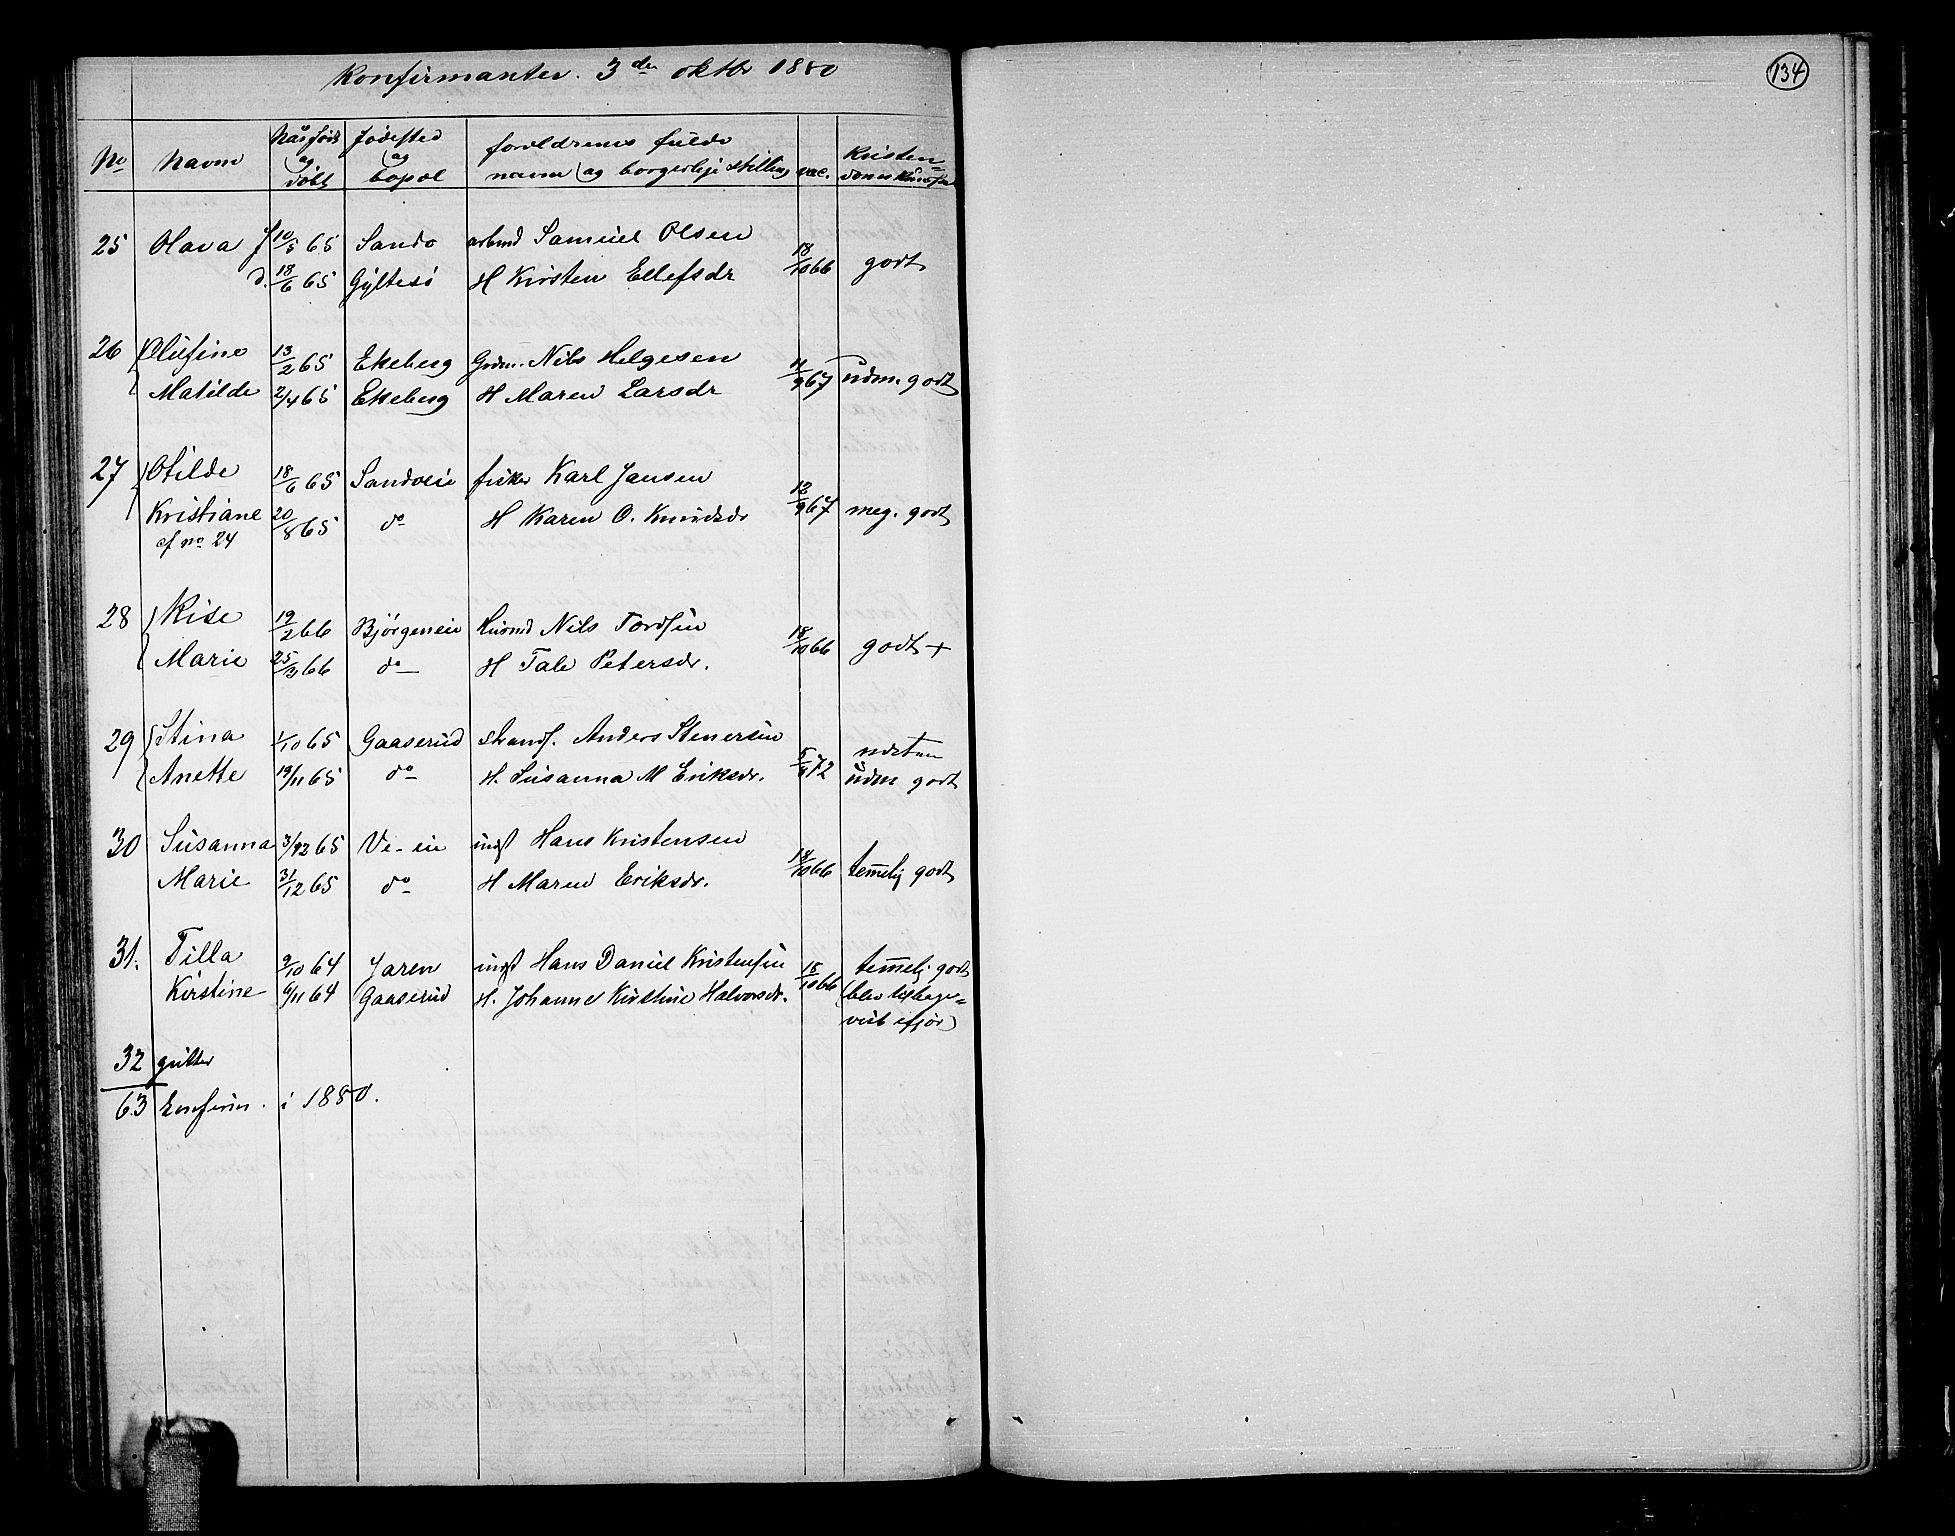 134
Konfirmanter. 3die oktbr 1880
No Navn Når født og døbt fødested og bopæl forældrenes fulde navn og borgerlige stilling vac. kristendomskundsk.
25 Olava f 10/5 65 Sando arbmd Samuel Olsen 18/10 66 godt
d. 18/6 65 Gyltesö H Kirsten Ellefsdr
26 Olufine 13/2 65 Ekeberg Grdm. Nils Helgesen 11/9 67 udm. godt
Matilde 2/4 65 Ekeberg H Maren Larsdr
27 Otilde 18/6 65 Sandveie fisker Karl Jansen 12/9 67 meg. godt
Kristiane 20/8 65 do H Karen O. Knudsdr
cf no 24
28 Rise 19/2 66 Bjørgeneie Husmd Nils Tordsen 18/10 66 godt +
Marie 25/3 66 do H Tale Petersdr.
29 Stina 1/10 65 Gaaserud strands. Anders Stenersen 5/6 72 næsten
Anette 19/11 65 do H. Susanna M Eriksdr. udm godt
30 Susanna 3/12 65 Ve-eie indst Hans Kristensen 18/10 66 temmelig godt
Marie 31/12 65 do H Maren Eriksdr.
31. Tilla 9/10 64 Jaren indst Hans Daniel Kristensen 18/10 66 temmelig godt
Kirstine 6/11 64 Gaaserud H. Johanne Kirstine Halvorsdr. (blev tilbage=
vist ifjor)
32 gutter
63 konfirm. i 1880.